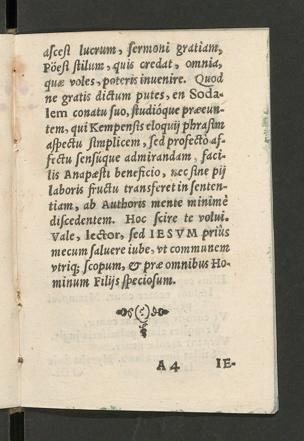 ascesi lucrum, sermoni gratiam,
Pöesi stilum, quis credat, omnia,
quæ voles, poteris inuenire. Quod
ne gratis dictum putes, en Soda-
lem conatu suo, studióque præeun-
tem, qui Kempensis eloquij phrasim
aspectu simplicem, sed profectò af-
fectu sensúque admirandam, faci-
lis Anapæsti beneficio, nec sine pij
laboris fructu transferet in senten-
tiam, ab Authoris mente minimè
discedentem. Hoc scire te volui.
Vale, lector, sed IESVM priùs
mecum saluere iube, vt communem
vtriq; scopum, & præ omnibus Ho-
minum Filijs speciosum.
A 4 IE-